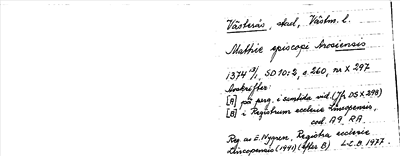 Västerås, stad, Västm. l.
Mathie episcopi Arosiensis
1374 3/1, SD 10:2, s 260, nr X 297
Avskrifter:
[A] på perg. i samtida vid. (Jfr DS X 298)
[B] i Registrum ecclesie Lincopensis,
cod. A9, RA.
Reg. av E. Nygren, Registra ecclesie
Lincopensis (1941) (efter B) L-E.B. 1977.